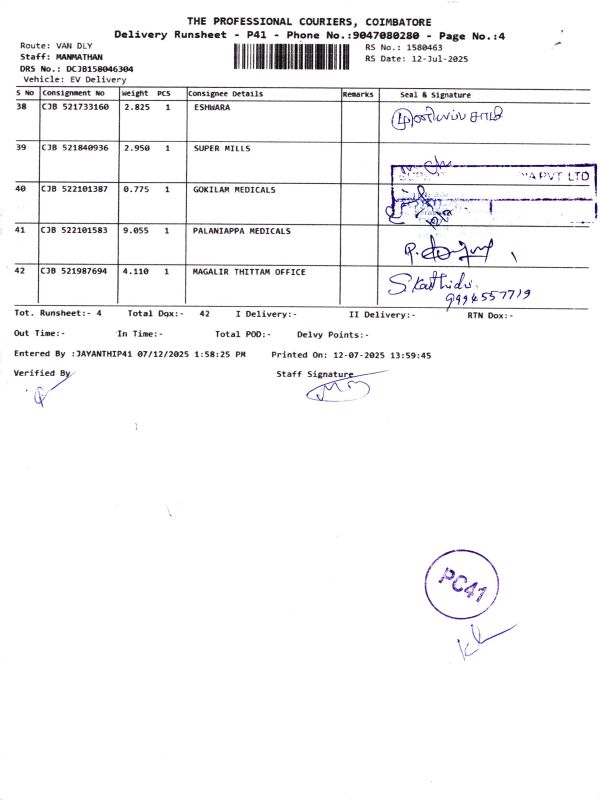 THE PROFESSIONAL COURIERS, COIMBATORE
Delivery Runsheet - P41 - Phone No.:9047080280 - Page No.:4
Route: VAN DLY RS No.: 1580463
Staff: MANMATHAN RS Date: 12-Jul-2025
DRS No.: DCJB158046304
Vehicle: EV Delivery
S No Consignment No Weight PCS Consignee Details Remarks Seal & Signature
38 CJB 521733160 2.825 1 ESHWARA
39 CJB 521840936 2.950 1 SUPER MILLS
PVT LTD
40 CJB 522101387 0.775 1 GOKILAM MEDICALS
41 CJB 522101583 9.055 1 PALANIAPPA MEDICALS
42 CJB 521987694 4.110 1 MAGALIR THITTAM OFFICE
9994557719
Tot. Runsheet:- 4 Total Dox:- 42 I Delivery:- II Delivery:- RTN Dox:-
Out Time:- In Time:- Total POD:- Delvy Points:-
Entered By :JAYANTHIP41 07/12/2025 1:58:25 PM Printed On: 12-07-2025 13:59:45
Verified By Staff Signature
PC41